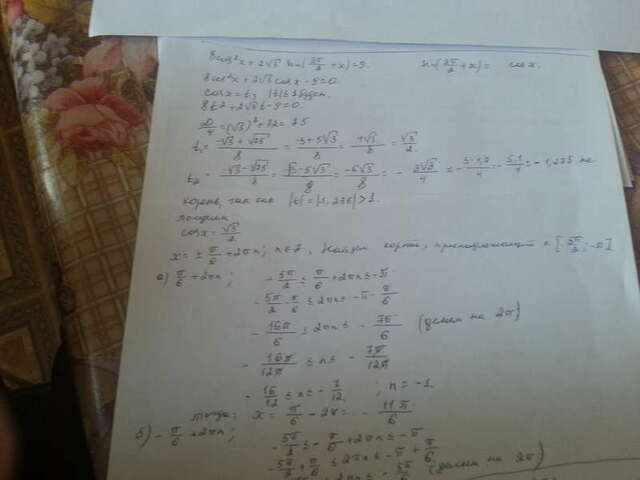 8cos²x + 2√3 sin(3π/2 + x) = 9. sin(3π/2 + x) = cosx.
8cos²x + 2√3 cosx - 9 = 0.
cosx = t, |t| ≤ 1
8t² + 2√3t - 9 = 0.
D/4 = (√3)² + 72 = 75
t₁ = (-√3 + √75)/8 = (-√3 + 5√3)/8 = 4√3/8 = √3/2
t₂ = (-√3 - √75)/8 = (-√3 - 5√3)/8 = -6√3/8 = - 3√3/4 = - 3·1,7/4 = - 5,1/4 = - 1,275 не
корень, так как |t| = |1,275| > 1.
получим
cosx = √3/2
x = ± π/6 + 2πn; n∈Z. Найдем корни, принадлежащий к [5π/2; -π]
а) π/6 + 2πn; - 5π/2 ≤ π/6 + 2πn ≤ -π
- 5π/2 - π/6 ≤ 2πn ≤ -π - π/6
- 16π/6 ≤ 2πn ≤ - 7π/6 (делим на 2π)
- 16π/12π ≤ n ≤ - 7π/12π
- 16/12 ≤ n ≤ - 7/12; n = -1.
тогда: x = π/6 - 2π = - 11π/6
б) - π/6 + 2πn; - 5π/2 ≤ - π/6 + 2πn ≤ -π
- 5π/2 + π/6 ≤ 2πn ≤ -π + π/6
≤ 2πn ≤ - 5π/6 (делим на 2π)